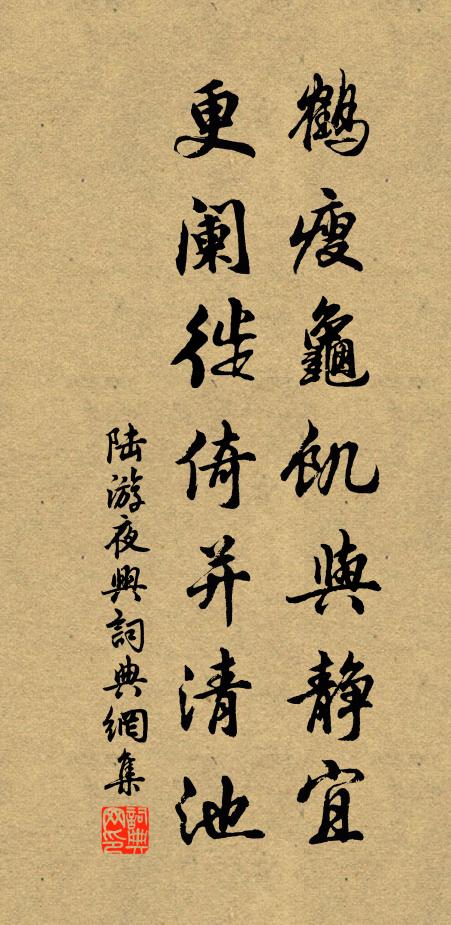 鶴瘦龜飢與静宜
更阑徙倚并清池
陆游夜興詞典網集
詞典网印